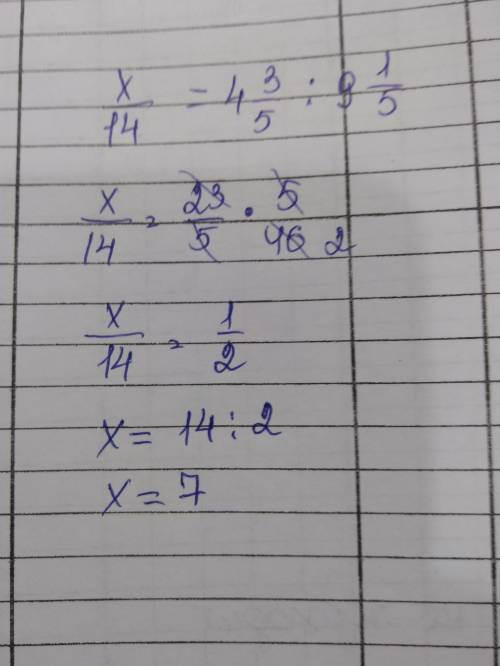 x/14 = 4 3/5 : 9 1/5
x/14 = 23/5 · 5/46 2
x/14 = 1/2
x = 14 : 2
x = 7